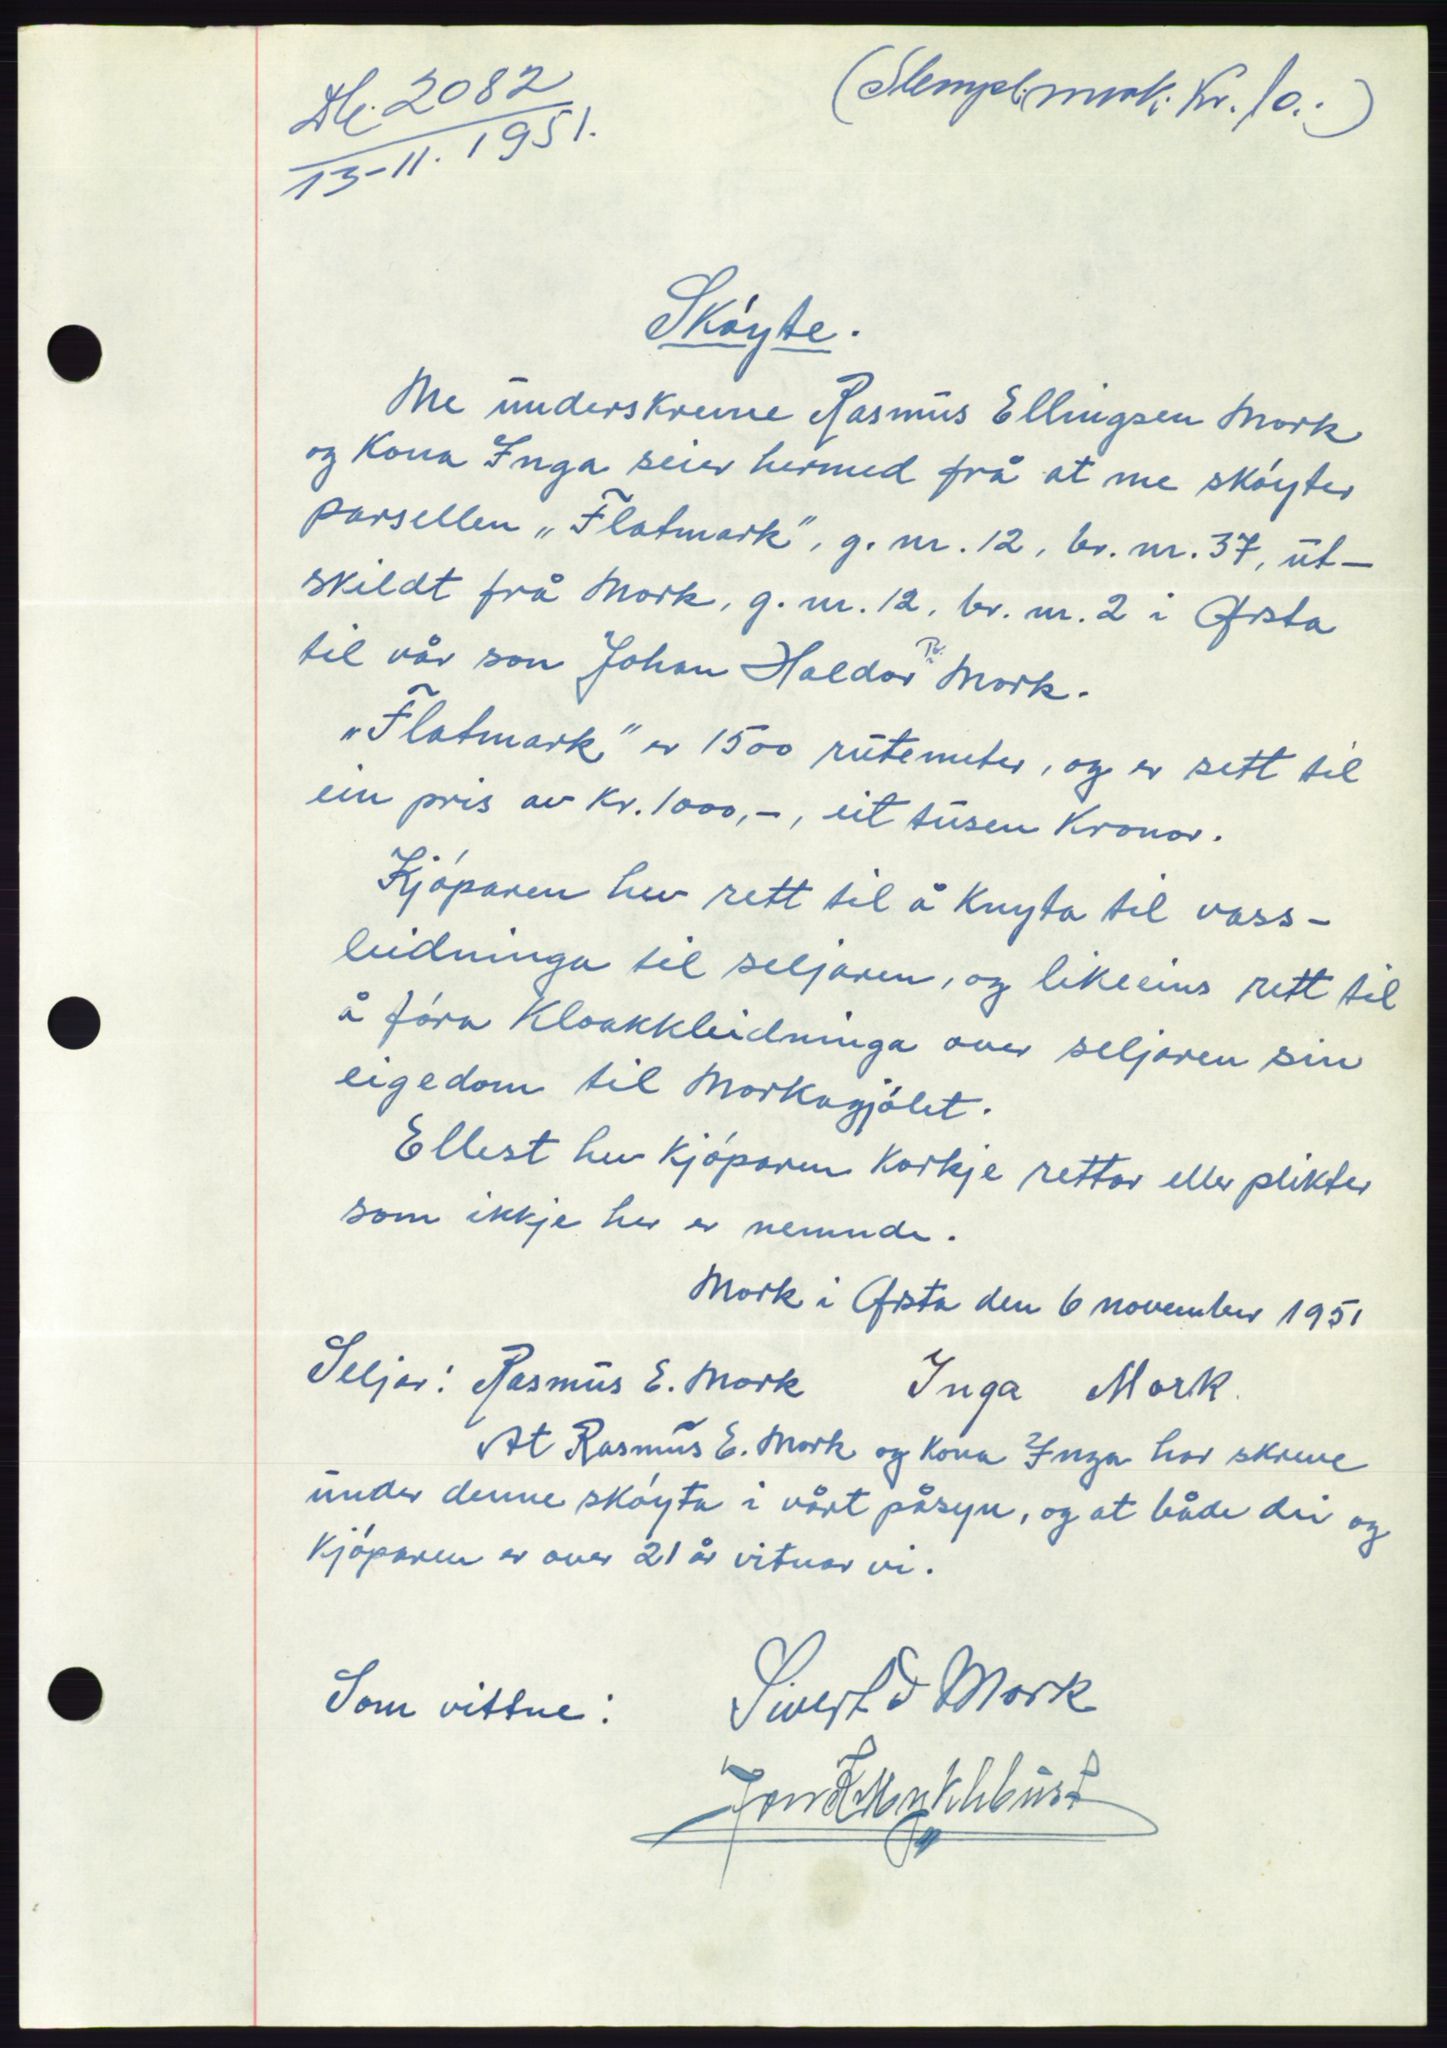 Db. 2082
13-11. 1951.
(Stempel: merk: kr. 10.:)
Skóyte.
Me underskrevne Rasmus Ellingsen Mork
og kona Inga seier hermed frå at me skóyter
parsellen „Flatmark", g. nr. 12, br. nr. 37, ut-
skildt frå Mork, g. nr. 12, br. nr. 2 i Ørsta
til vår son Johan Haldor R. Mork.
„Flatmark" er 1500 rutemeter, og er sett til
ein pris av Kr. 1000,-, eit tusen Kronor.
Kjóparen hev rett til å knyta til vass-
leidninga til seljaren, og likeeins rett til
å fóra Kloakkleidninga over seljaren sin
eigedom til Morkagjólet.
Ellest hev kjóparen korkje rettar eller plikter
som ikkje her er nemnde.
Mork i Ørsta den 6 november 1951
Seljar: Rasmus E. Mork Inga Mork.
At Rasmus E. Mork og kona Inga har skreve
under denne skóyta i vårt påsyn, og at både dei og
kjóparen er over 21 år vitnar vi.
Som vittne: Sivert d Mork
Jon R Myklebust